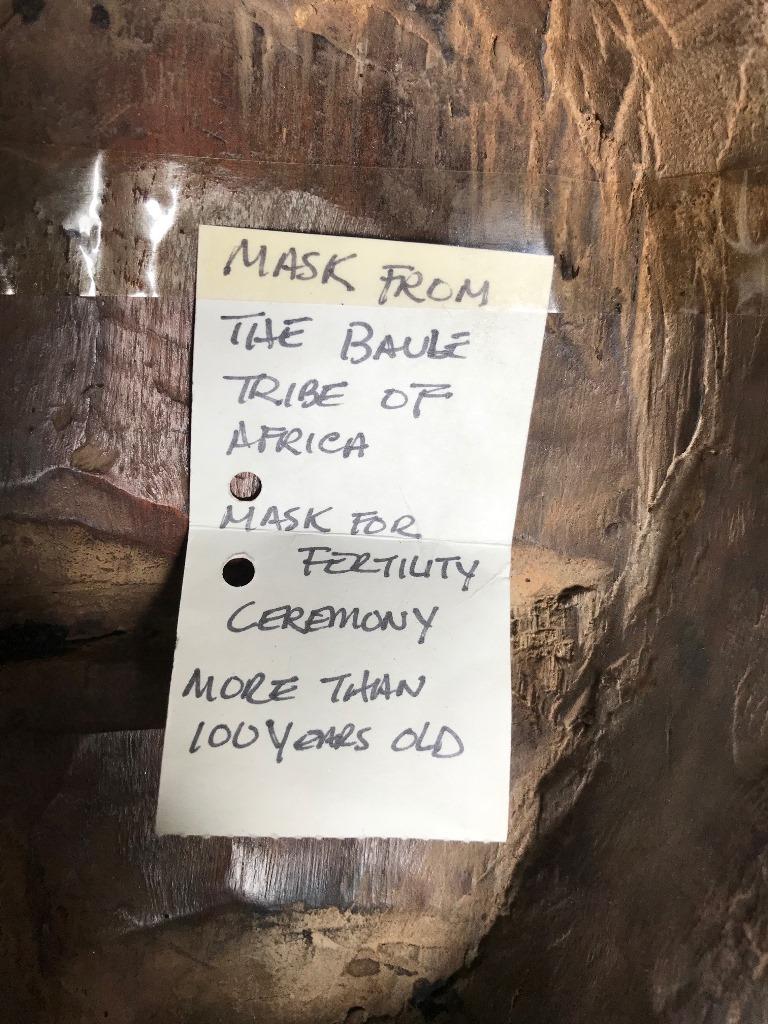 MASK FROM
THE BAULE
TRIBE OF
AFRICA
MASK FOR
FERTILITY
CEREMONY
MORE THAN
100 YEARS OLD